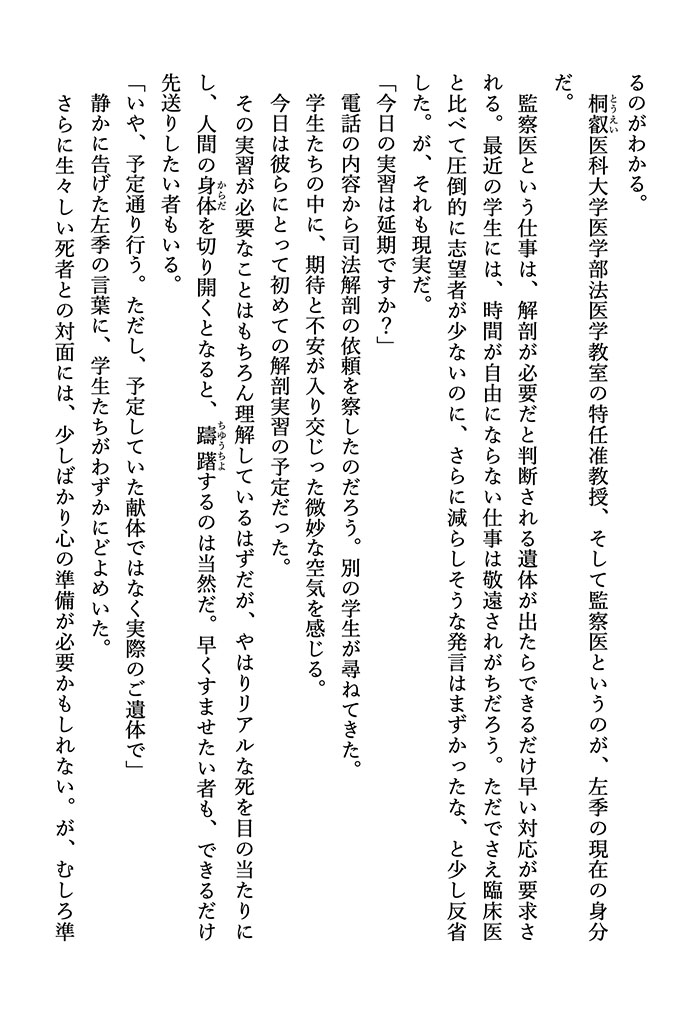 るのがわかる。
桐叡医科大学医学部法医学教室の特任准教授、そして監察医というのが、左季の現在の身分
だ。
監察医という仕事は、解剖が必要だと判断される遺体が出たらできるだけ早い対応が要求さ
れる。最近の学生には、時間が自由にならない仕事は敬遠されがちだろう。ただでさえ臨床医
と比べて圧倒的に志望者が少ないのに、さらに減らしそうな発言はまずかったな、と少し反省
した。が、それも現実だ。
「今日の実習は延期ですか？」
電話の内容から司法解剖の依頼を察したのだろう。別の学生が尋ねてきた。
学生たちの中に、期待と不安が入り交じった微妙な空気を感じる。
今日は彼らにとって初めての解剖実習の予定だった。
その実習が必要なことはもちろん理解しているはずだが、やはりリアルな死を目の当たりに
し、人間の身体を切り開くとなると、躊躇するのは当然だ。早くすませたい者も、できるだけ
先送りしたい者もいる。
「いや、予定通り行う。ただし、予定していた献体ではなく実際のご遺体で」
静かに告げた左季の言葉に、学生たちがわずかにどよめいた。
さらに生々しい死者との対面には、少しばかり心の準備が必要かもしれない。が、むしろ準